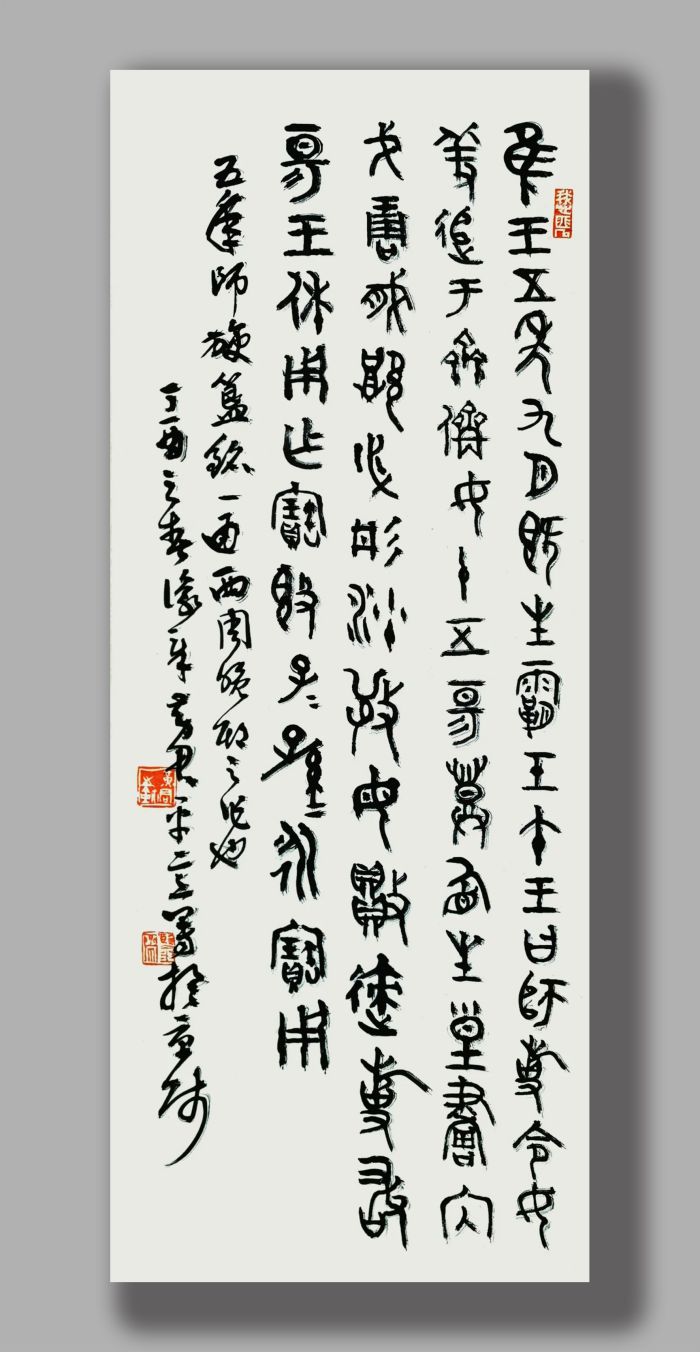 隹王五年九月既生霸壬午王曰師旋令女
羞追于齊儕女十五昜登盾生皇畫內
戈琱㦸必彤沙敬毋敗速旋敢
昜王休用乍寶簋子孫永寶用
五年師旋簋銘一通西周晚期之作也
丁酉之春